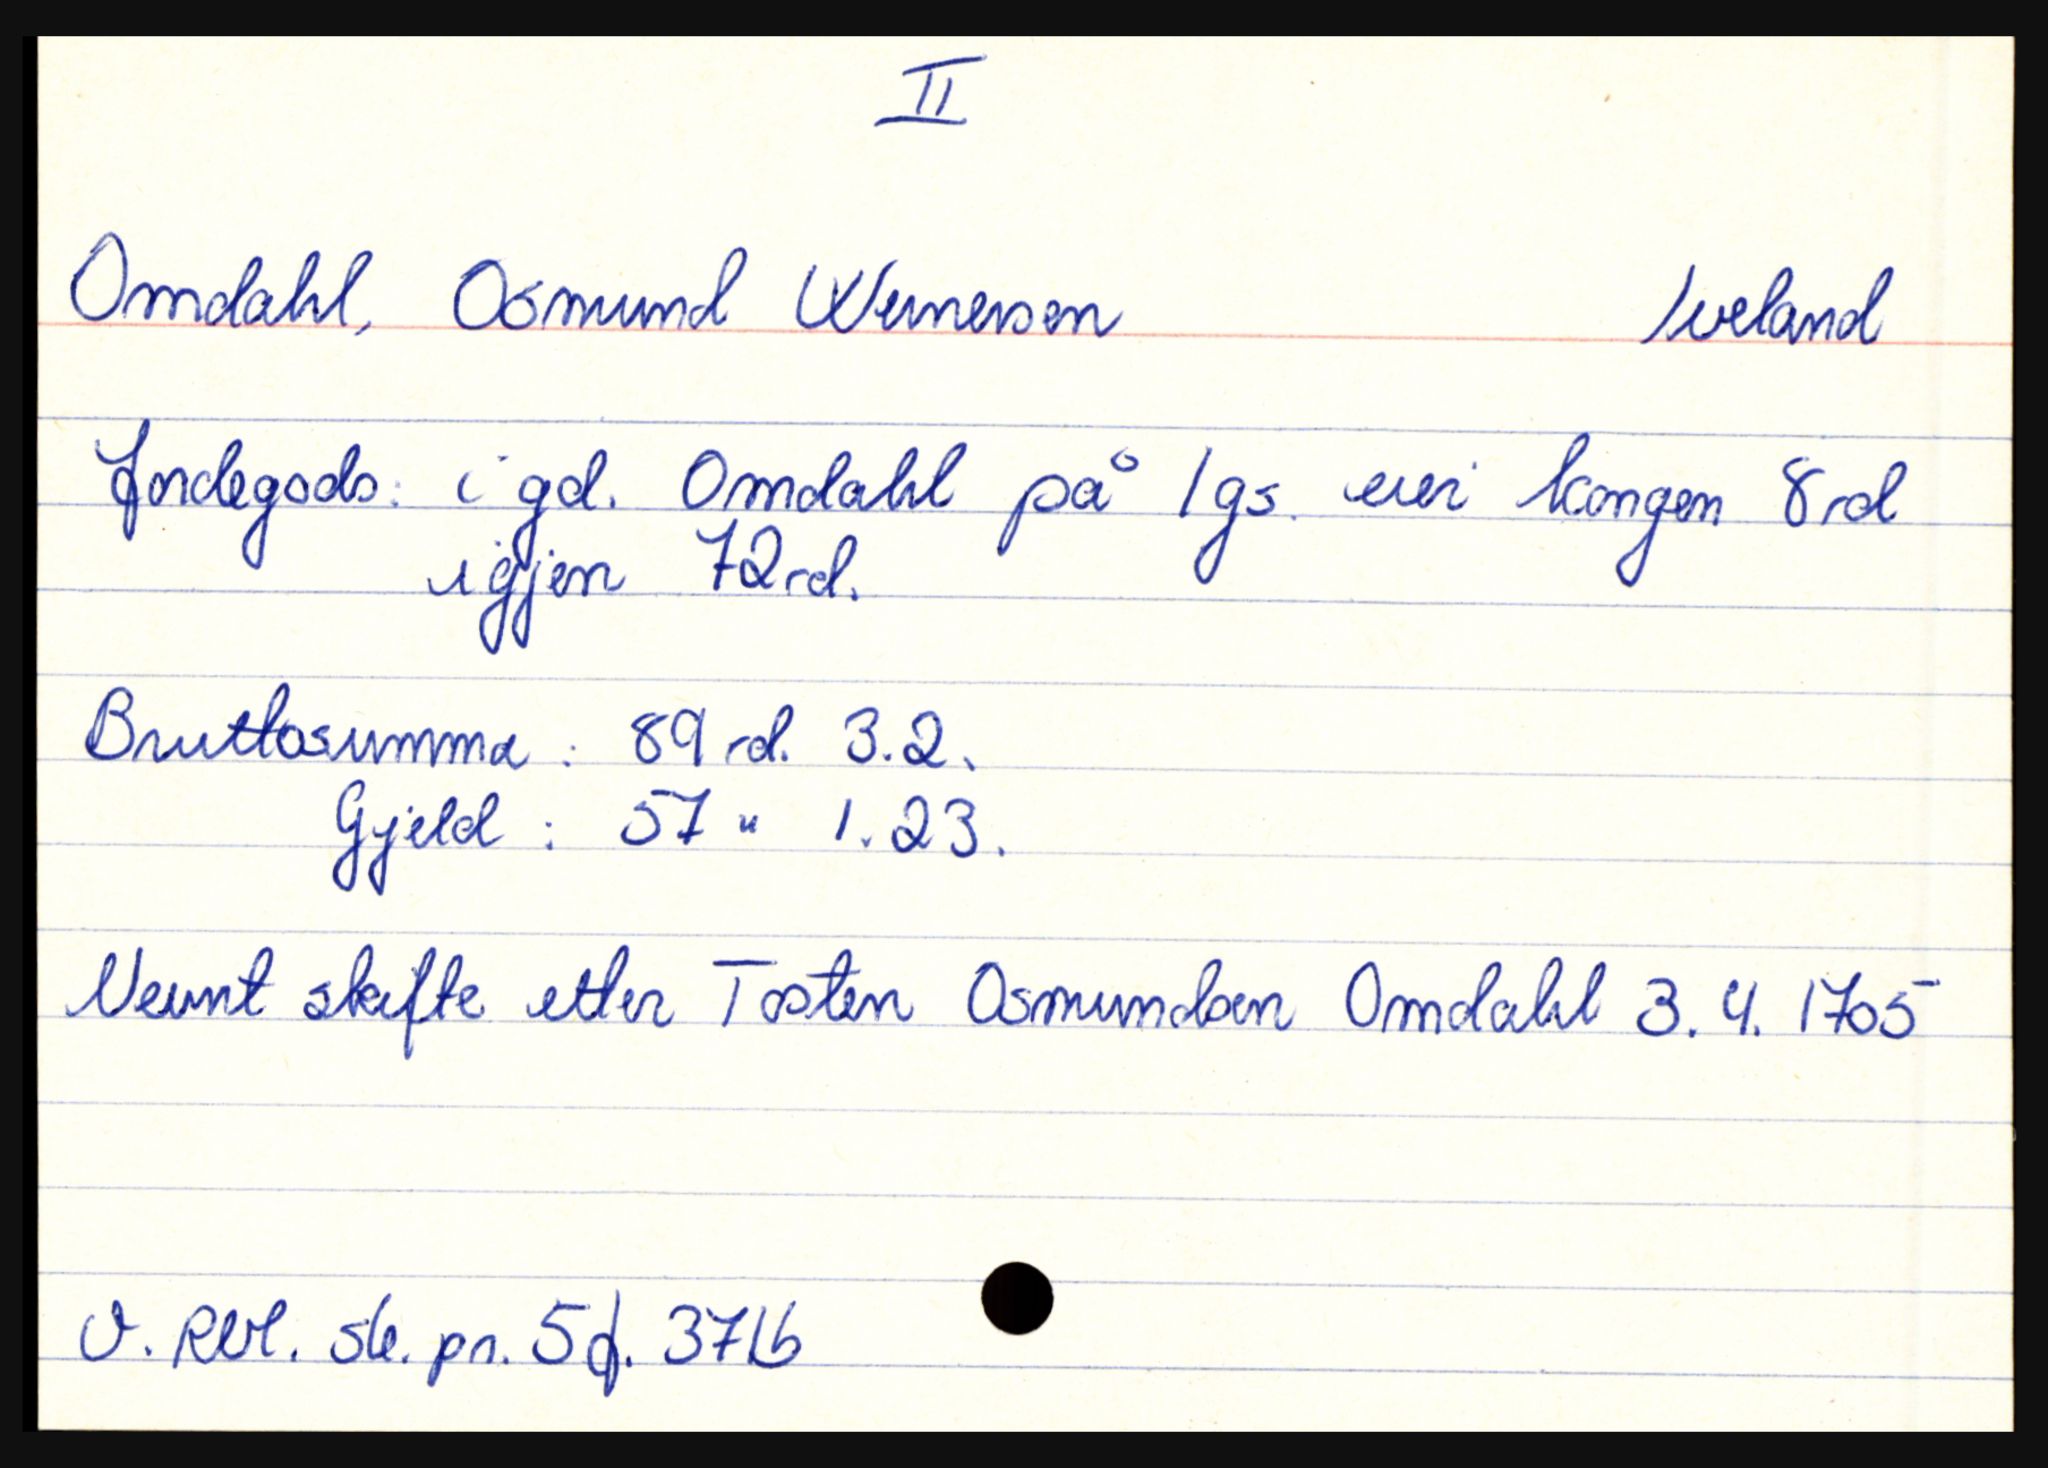 II
Omdahl, Osmund Wernersen Iveland
Jordegods: i gd. Omdahl på 1 gs. eier kongen 8 rd
igjen 72 rd.
Bruttosumma: 89 rd. 3.2.
Gjeld: 57 " 1.23.
Nevnt skifte etter Tosten Osmundsen Omdahl 3.4.1705
V. Rbl. sk. pr. 5 f. 371b